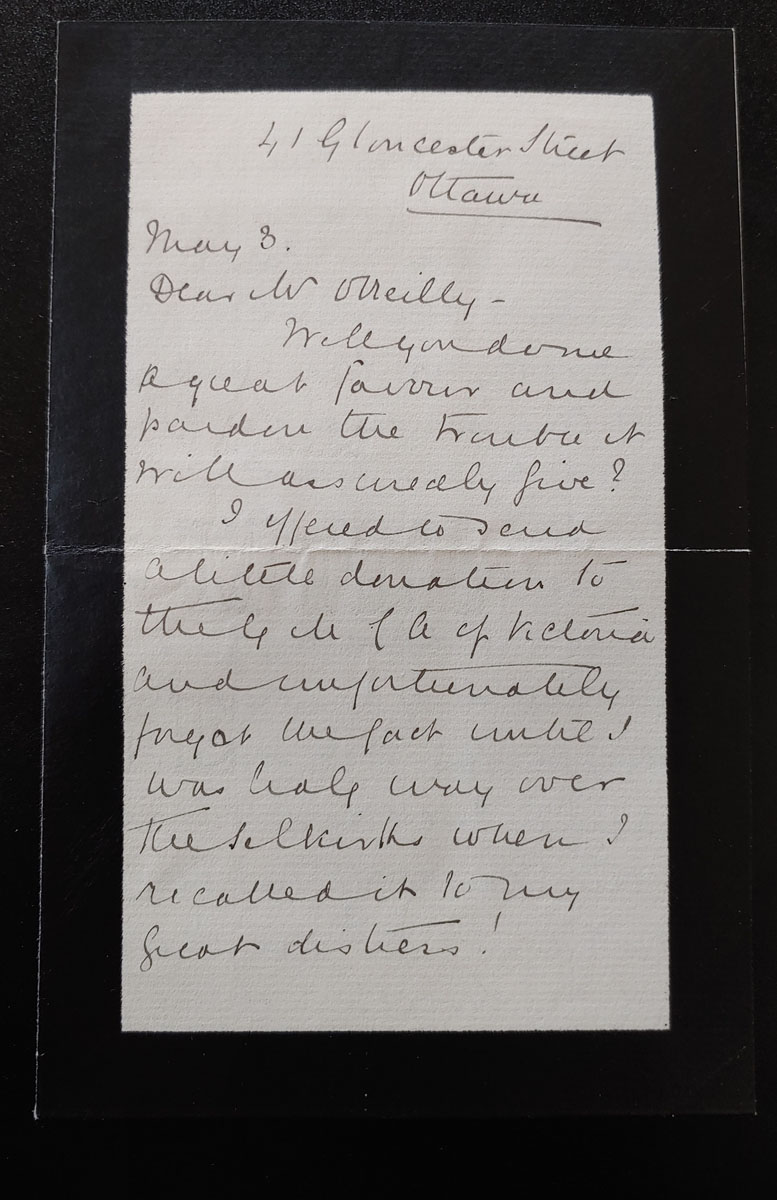 41 Gloucester Street
Ottawa
May 3.
Dear Mr O'Reilly -
Will you do me
a great favour and
pardon the trouble it
will assuredly give?
I offered to send
a little donation to
the Y M C A of Victoria
and unfortunately
forgot the fact until I
was half way over
the Selkirks when I
recalled it to my
great distress!